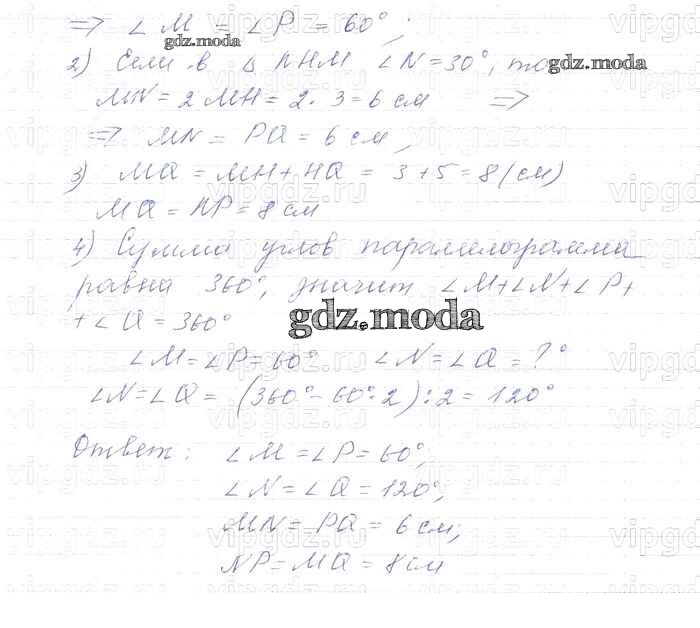 => ∠M = ∠P = 60°;
gdz.moda
2) Если в △ NHM ∠N = 30°, то
gdz.moda
MN = 2 MH = 2 · 3 = 6 см =>
=> MN = PQ = 6 см,
3) MQ = MH + HQ = 3 + 5 = 8 (см)
MQ = NP = 8 см
4) Сумма углов параллелограмма
равна 360°, значит ∠M + ∠N + ∠P +
+ ∠Q = 360°
gdz.moda
∠M = ∠P = 60° ∠N = ∠Q = ?°
∠N = ∠Q = (360° - 60° · 2) : 2 = 120°
Ответ: ∠M = ∠P = 60°;
∠N = ∠Q = 120°;
MN = PQ = 6 см;
NP = MQ = 8 см
vipgdz.ru